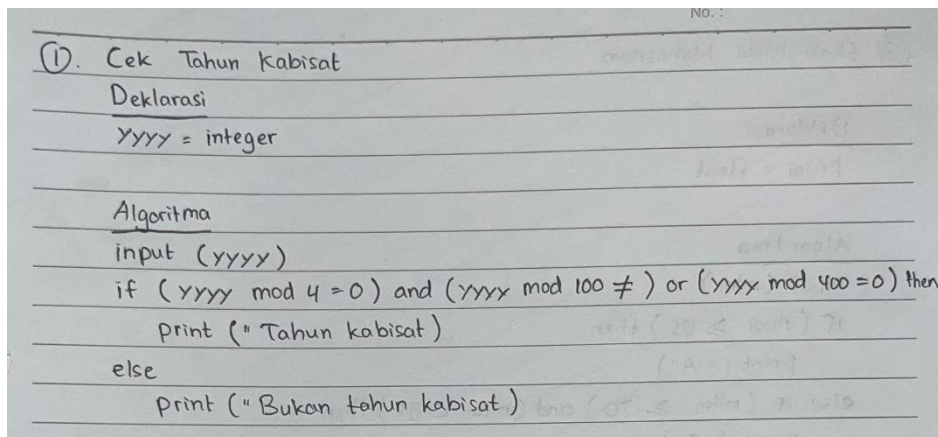 No. :
①. Cek Tahun Kabisat
Deklarasi
YYYY = integer
Algoritma
input (YYYY)
if (YYYY mod 4 = 0) and (YYYY mod 100 ≠ ) or (YYYY mod 400 = 0) then
print (" Tahun kabisat)
else
print (" Bukan tahun kabisat)